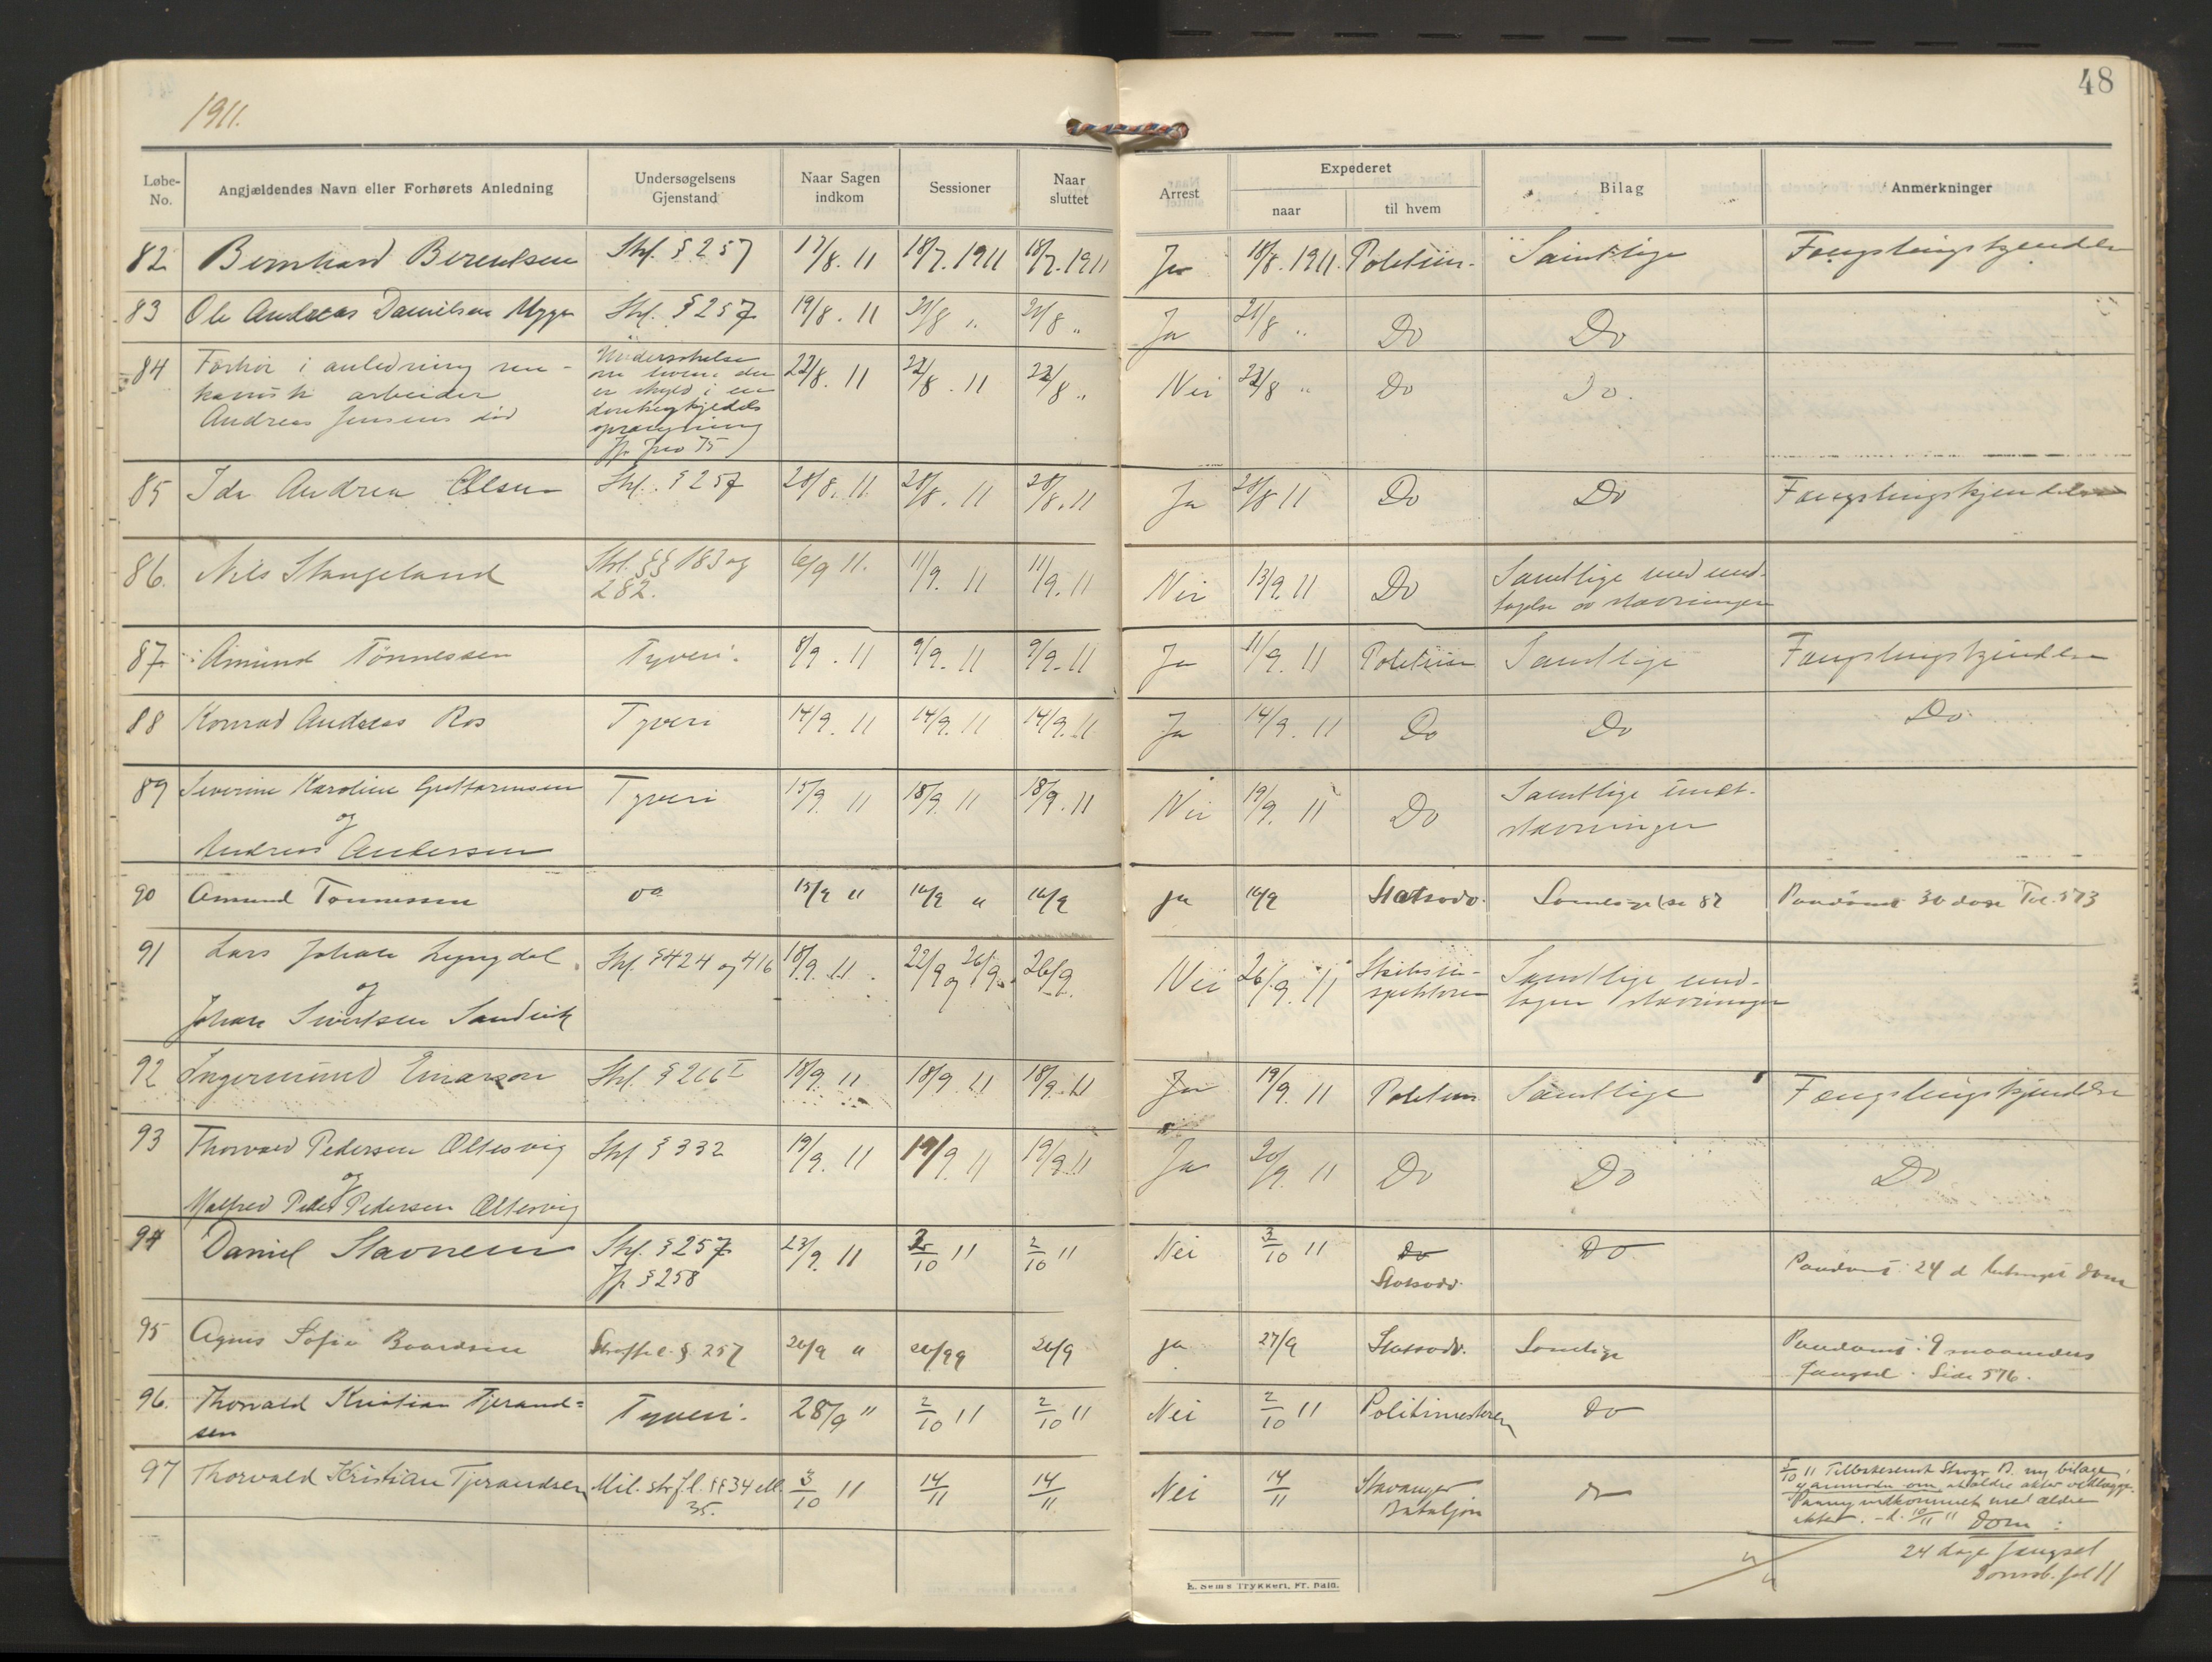 48
1911.
Løbe-No. Angjældendes Navn eller Forhørets Anledning Undersøgelsens Gjenstand Naar Sagen indkom Sessioner Naar sluttet Arrest Expederet naar til hvem Bilag Anmerkninger
82 Bernhard Berentsen Strl. § 257 17/8. 11 18/7. 1911 18/7. 1911 Ja 18/8. 1911. Politiin. Samtlige Fængslingskjendelse
83 Ole Andreas Danielsen Strl. § 257 19/8. 11 21/8 " 21/8 " Ja 21/8 " Do Do
84 Forhør i anledning me-
kanisk arbeider
Andreas Jensens død
Undersøkelse
om hvem der
er skyld i en
jfr. jno 75
22/8. 11 22/8. 11 22/8 " Nei 22/8 " Do Do.
85 Ida Andrea Olsen Strl. § 257 28/8. 11. 28/8. 11 28/8. 11 Ja 28/8 11 Do Do Fængslingskjendelse
86. Nils Stangeland Strl. §§ 183 og
282.
6/9 11. 11/9. 11 11/9. 11 Nei 13/9. 11 Do Samtlige med und-
tagelse av stævningen
87 Amund Tönnessen Tyveri. 8/9. 11 9/9. 11 9/9. 11 Ja 11/9. 11 Politiin Samtlige Fængslingskjendelse
88 Konrad Andreas Ros Tyveri 14/9. 11 14/9. 11 14/9. 11 Ja 14/9. 11 Do Do Do
89 Severine Karoline Guttormsen
og
Andreas Andersen
Tyveri 15/9 11 18/9 11 18/9. 11 Nei 19/9. 11 Do Samtlige undt.
stævningen
90 Amund Tönnessen 15/9 " 16/9 " 16/9 ja 16/9 Statsadv. 87 Paadömt 30 dage 573
91 Lars Johan Lyngdal
og
Johan Sivertsen Sandvik
Strl. § 424 og 416 18/9. 11. 22/9 og 26/9 26/9. Nei 26/9. 11 Skibsin-
spektören
Samtlige und-
tagen stævningen
92 Ingermund Einarson Strl. § 266 I 18/9. 11 18/9. 11 18/9. 11 Ja 19/9. 11 Politiin Samtlige Fængslingskjendelse
93 Thorvald Pedersen Oltesvig
og
Malfred Peder Pedersen Oltesvig
Strl § 332 19/9. 11 19/9. 11 19/9. 11 Ja 20/9. 11 Do Do Do
94 Daniel Stavnem Strl. § 257
jfr. § 258
23/9. 11 2/10 11 2/10 11 Nei 3/10 11 Do
Statsadv.
Do Paadömt: 24 d. betinget dom
95 Agnes Sofie Baardsen Straffel. § 257 26/9 " 26/9 26/9 ja 27/9 Statsadv. Samtlige Paadömt: 9 maaneders
fængsel. Side 576.
96. Thorvald Kristian Tjerand=
sen
Tyveri. 28/9 " 2/10 11 2/10 11 Nei 2/10 11 Politimesteren Do
97 Thorvald Kristian Tjerandsen Mil. strfl. §§ 34 ell.
35.
3/10 11 14/11 14/11 Nei 14/11 Stavanger
Bataljon
Do 5/10 11 Tilbakesendt B. ny bilage,
anmodn. om at ældre akter vedlægges.
Paany indkommet med ældre
akter. - d. 10/11 " Dom:
24 dage fængsel
Domsb. fol 11
E. Sems Trykkeri, Fr. hald.